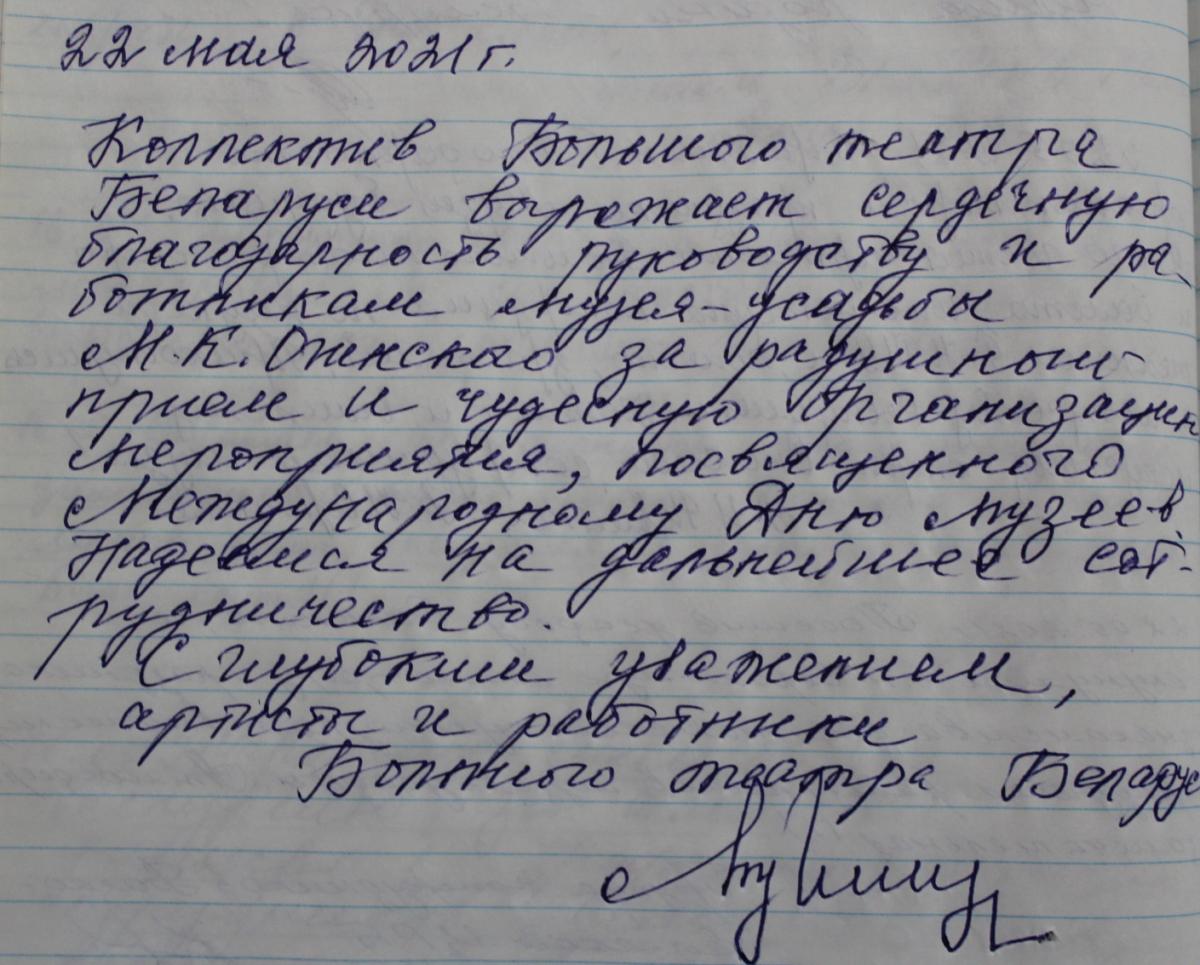 22 мая 2021 г.
Коллектив Большого театра
Беларуси выражает сердечную
благодарность руководству и ра-
ботникам музея-усадьбы
М.К. Огинского за радушный
прием и чудесную организацию
мероприятия, посвященного
Международному Дню музеев.
Надеемся на дальнейшее сот-
рудничество.
С глубоким уважением,
артисты и работники
Большого театра Беларуси